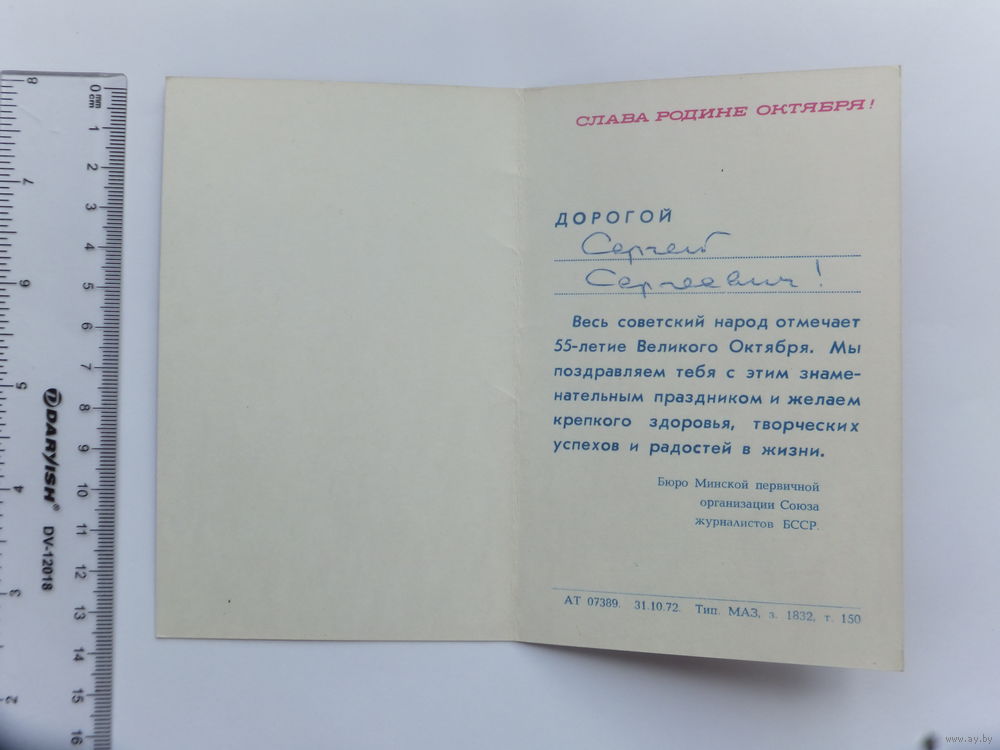 СЛАВА РОДИНЕ ОКТЯБРЯ!
ДОРОГОЙ
Сергей
Сергеевич!
Весь советский народ отмечает
55-летие Великого Октября. Мы
поздравляем тебя с этим знаме-
нательным праздником и желаем
крепкого здоровья, творческих
успехов и радостей в жизни.
Бюро Минской первичной
организации Союза
журналистов БССР.
АТ 07389. 31.10.72. Тип. МАЗ, з. 1832, т. 150
8
7
6
5
4
3
2
0 mm
cm
1
2
3
4
5
6
7
8
9
10
11
12
13
14
15
16
DARYISH®
DV-12018
www.ay.by